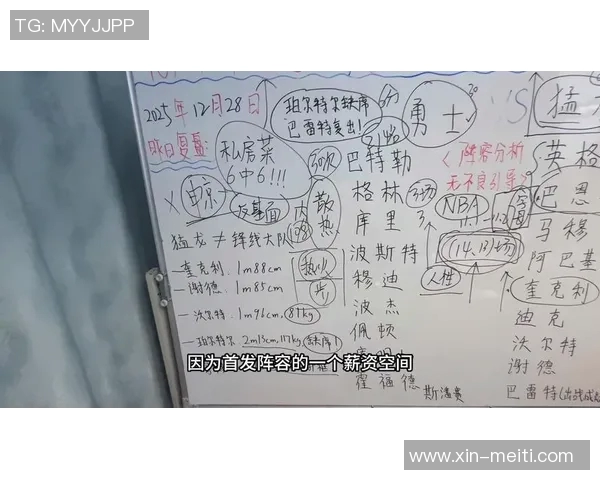 TG: MYYJJPP
2025年12月28日
昨日复盘:
私房菜
6中6!!!
珀尔特尔缺席
巴雷特复出!
勇士
VS
猛
<阵容分析
无不良引导>
反基面
猛龙≠锋线大队
-奎克利. 1m88cm
-谢德. 1m85cm
-沃尔特. 1m96cm, 87kg
-珀尔特尔. 2m13cm, 117kg
缺席!
散热
热火
步
巴特勒
格林
库里
波斯特
穆迪
波杰
佩顿
霍福德
斯潘赛
3场
NBA
(14.13)场
人性
英格
巴恩
马穆
阿巴基
奎克利
迪克
沃尔特
谢德
巴雷特
因为首发阵容的一个薪资空间
www.xin-meiti.com